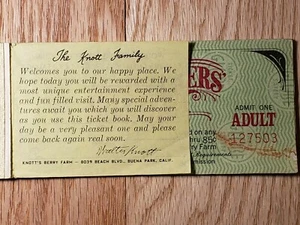 The Knott Family
Welcomes you to our happy place. We
hope today you will be rewarded with a
most unique entertainment experience
and fun filled visit. Many special adven-
tures await you which you will discover
as you use this ticket book. May your
day be a very pleasant one and please
come back again real soon.
Walter Knott
KNOTT'S BERRY FARM - 8039 BEACH BLVD., BUENA PARK, CALIF.
ERS'
ADMIT ONE
ADULT
on any
85¢
127503
ry Farm
mission